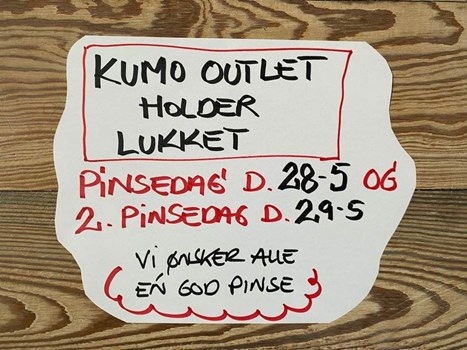 KUMO OUTLET
HOLDER
LUKKET
PINSEDAG D. 28-5 OG
2. PINSEDAG D. 29-5
Vi ØNSKER ALLE
EN GOD PINSE